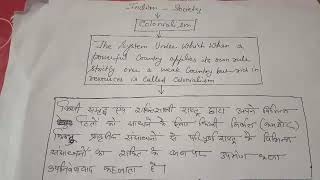 Indian - Society
Colonialism
The System Under Which when a
powerful Country applies its own rule
strictly over a weak Country but rich in
resources is called Colonialism
किसी समृद्ध एवं शक्तिशाली राष्ट्र द्वारा अपने विभिन्न
हितों को साधने के लिए किसी निर्बल (कमजोर)
किन्तु प्राकृतिक संसाधनों से परिपूर्ण राष्ट्र के विभिन्न
संसाधनों का शक्ति के बल पर उपभोग करना
उपनिवेशवाद कहलाता है।